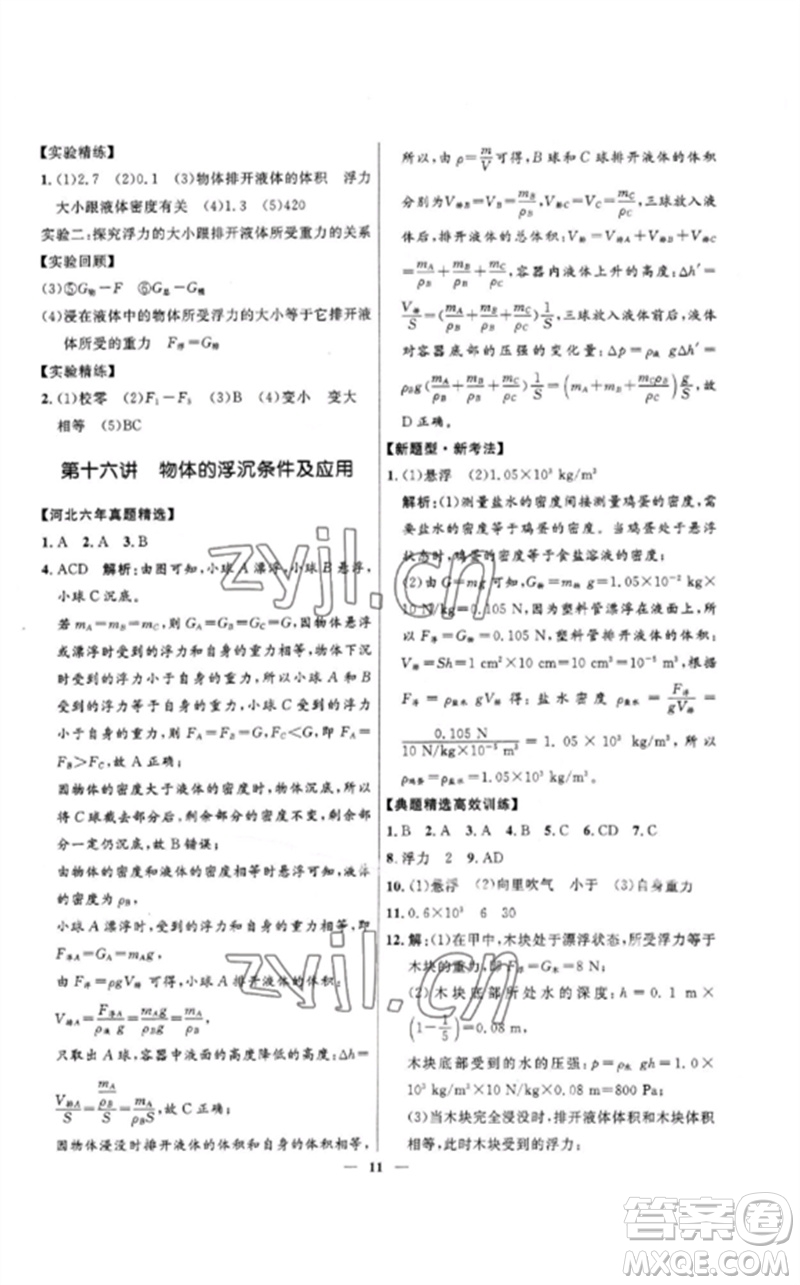 【实验精练】
1. (1)2.7 (2)0.1 (3)物体排开液体的体积 浮力
大小跟液体密度有关 (4)1.3 (5)420
实验二:探究浮力的大小跟排开液体所受重力的关系
【实验回顾】
(3)⑤G物－F ⑥G总－G桶
(4)浸在液体中的物体所受浮力的大小等于它排开液
体所受的重力 F浮=G排
【实验精练】
2. (1)校零 (2)F₁－F₃ (3)B (4)变小 变大
相等 (5)BC
第十六讲 物体的浮沉条件及应用
【河北六年真题精选】
1. A 2. A 3. B
4. ACD 解析:由图可知,小球A漂浮,小球B悬浮,
小球C沉底。
若mA=mB=mC,则GA=GB=GC,因物体悬浮
或漂浮时受到的浮力和自身的重力相等,物体下沉
时受到的浮力小于自身的重力,所以,小球A和B
受到的浮力等于自身的重力,小球C受到的浮力
小于自身的重力,则三个小球受到的浮力FA=
FB>FC,故A正确;
因物体的密度大于液体的密度时物体沉底,所以
将C球截去部分后,剩余部分的密度不变,剩余部
分一定仍沉底,故B错误;
因物体的密度和液体的密度相等时悬浮可知,液
体的密度为ρB,
小球A漂浮时,受到的浮力和自身的重力相等,即
F浮A=GA=mAg,
由F浮=ρgV排可得,小球A排开液体的体积:
V排A=F浮A/ρ液g=mAg/ρBg=mA/ρB,
只取出A球,容器中液面的高度降低的高度:Δh=
V排A/S=(mA/ρB)/S=mA/ρBS,故C正确;
因物体浸没时排开液体的体积和自身的体积相等,
所以,由ρ=m/V可得,B球和C球排开液体的体积
分别为V排B=VB=mB/ρB、V排C=VC=mC/ρC,三球放入液
体后,排开液体的总体积:V排=V排A+V排B+V排C
=mA/ρB+mB/ρB+mC/ρC,容器内液体上升的高度:Δh′=
V排/S=(mA/ρB+mB/ρB+mC/ρC)1/S,三球放入液体前后,液体
对容器底部的压强的变化量:Δp=ρ液gΔh′=
ρBg(mA/ρB+mB/ρB+mC/ρC)1/S=(mA+mB+mCρB/ρC)g/S,故
D正确。
【新题型·新考法】
1. (1)悬浮 (2)1.05×10³ kg/m³
解析:(1)测量盐水的密度间接测量鸡蛋的密度,需
要盐水的密度和鸡蛋的密度相等。当鸡蛋处于悬浮
状态时,鸡蛋的密度等于食盐溶液的密度;
(2)由G=mg可知,G管=m管g=1.05×10⁻² kg×
10 N/kg=0.105 N,因为塑料管漂浮在液面上,所
以F浮=G管=0.105 N,塑料管排开液体的体积:
V排=Sh=1 cm²×10 cm=10 cm³=10⁻⁵ m³,根据
F浮=ρ盐水gV排得:盐水密度ρ盐水=F浮/gV排=
0.105 N/(10 N/kg×10⁻⁵ m³)=1.05×10³ kg/m³,所以
ρ蛋=ρ盐水=1.05×10³ kg/m³。
【典题精选高效训练】
1. B 2. A 3. A 4. B 5. C 6. CD 7. C
8. 浮力 2 9. AD
10. (1)悬浮 (2)向里吹气 小于 (3)自身重力
11. 0.6×10³ 6 30
12. 解:(1)在甲中,木块处于漂浮状态,所受浮力等于
木块的重力,F浮=G木=8 N;
(2)木块底部所处水的深度:h=0.1 m×
(1－1/5)=0.08 m,
木块底部受到的水的压强:p=ρ水gh=1.0×
10³ kg/m³×10 N/kg×0.08 m=800 Pa;
(3)当木块完全浸没时,排开液体体积和木块体积
相等,此时木块受到的浮力:
11
zyjl.cn
zyjl.cn
答案圈
MXQE.COM